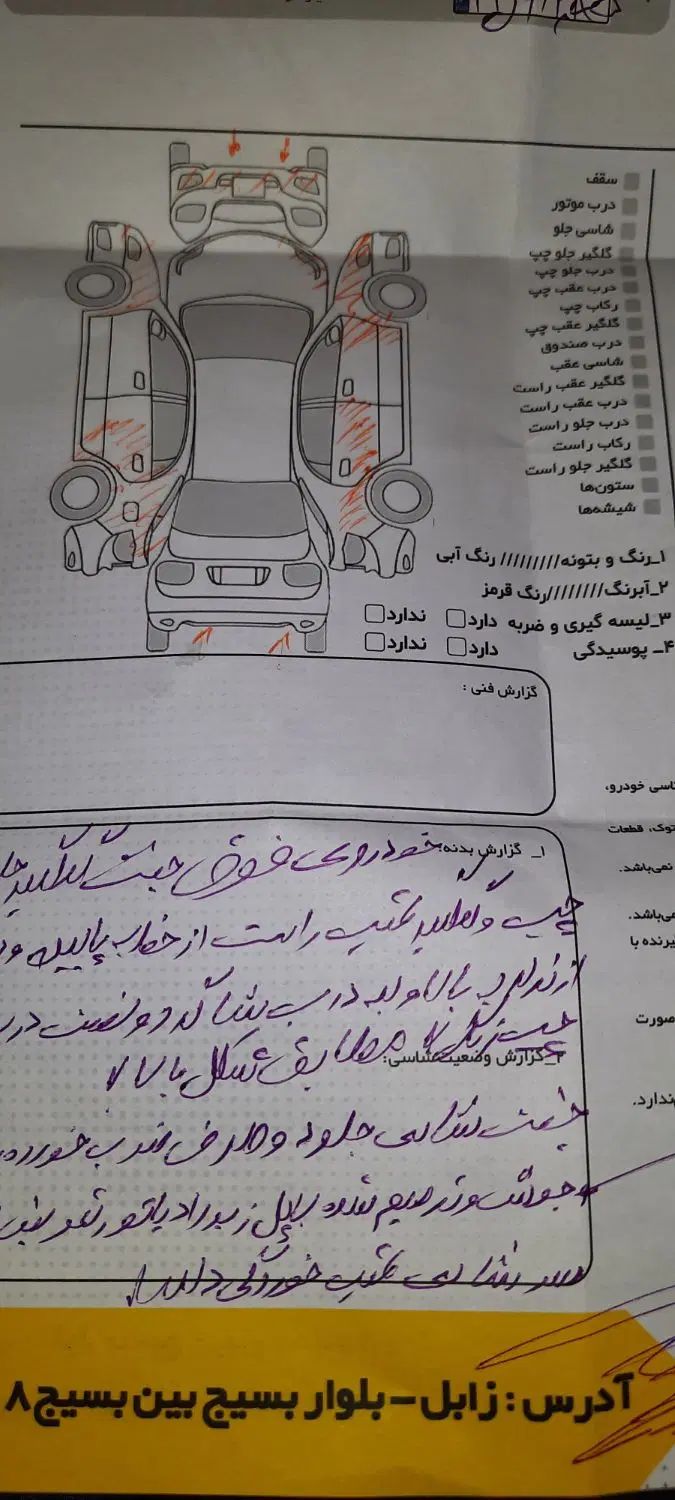 سقف
درب موتور
شاسی جلو
گلگیر جلو چپ
درب جلو چپ
درب عقب چپ
رکاب چپ
گلگیر عقب چپ
درب صندوق
شاسی عقب
گلگیر عقب راست
درب عقب راست
درب جلو راست
رکاب راست
گلگیر جلو راست
ستون‌ها
شیشه‌ها
۱_رنگ و بتونه///////// رنگ آبی
۲_آبرنگ////////رنگ قرمز
۳_لیسه گیری و ضربه دارد ندارد
۴_ پوسیدگی دارد ندارد
گزارش فنی :
اسی خودرو،
توک، قطعات
نمی‌باشد.
می‌باشد.
گیرنده با
صورت
ندارد.
۱_ گزارش بدنه: خودروی فوق جفت گلگیر
چپ و گلگیر عقب راست از
درب شاگرد و نصف در
چپ رنگ مطابق شکل بالا
۲_گزارش وضعیت شاسی:
جفت شاسی جلو ضرب خورده
جوش و ترمیم شده پل زیر رادیاتور تعویض
سر شاسی عقب خوردگی دارد
آدرس : زابل – بلوار بسیج بین بسیج ۸